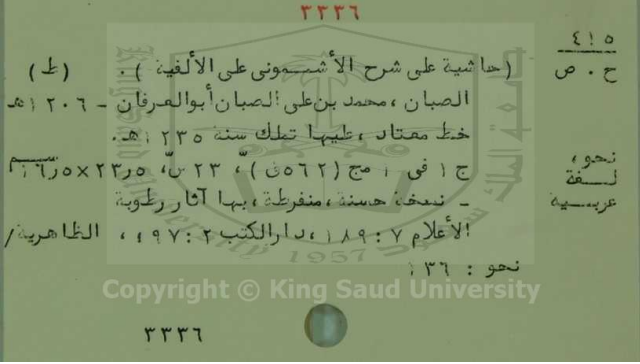 ٣٣٣٦
٤١٥
ح ٠ ص
(حاشية على شرح الأشمونى على الألفية ) ٠ (ط)
الصبان ، محمد بن على الصبان أبو العرفان - ١٢٠٦هـ
خط معتاد ، عليها تملك سنة ١٢٣٥هـ٠
نحو،
لغة
عربية
ج١ فى ١ مج (٥٦٢ق) ، ٢٣س، ٢٣٫٥×١٦٫٥سم
- نسخة حسنة ، منفرطة ، بها آثار رطوبة
الأعلام ٧ : ١٨٩ ، دار الكتب ٢ : ٩٧ ، الظاهرية/
نحو : ١٣٦
1957
Copyright © King Saud University
٣٣٣٦